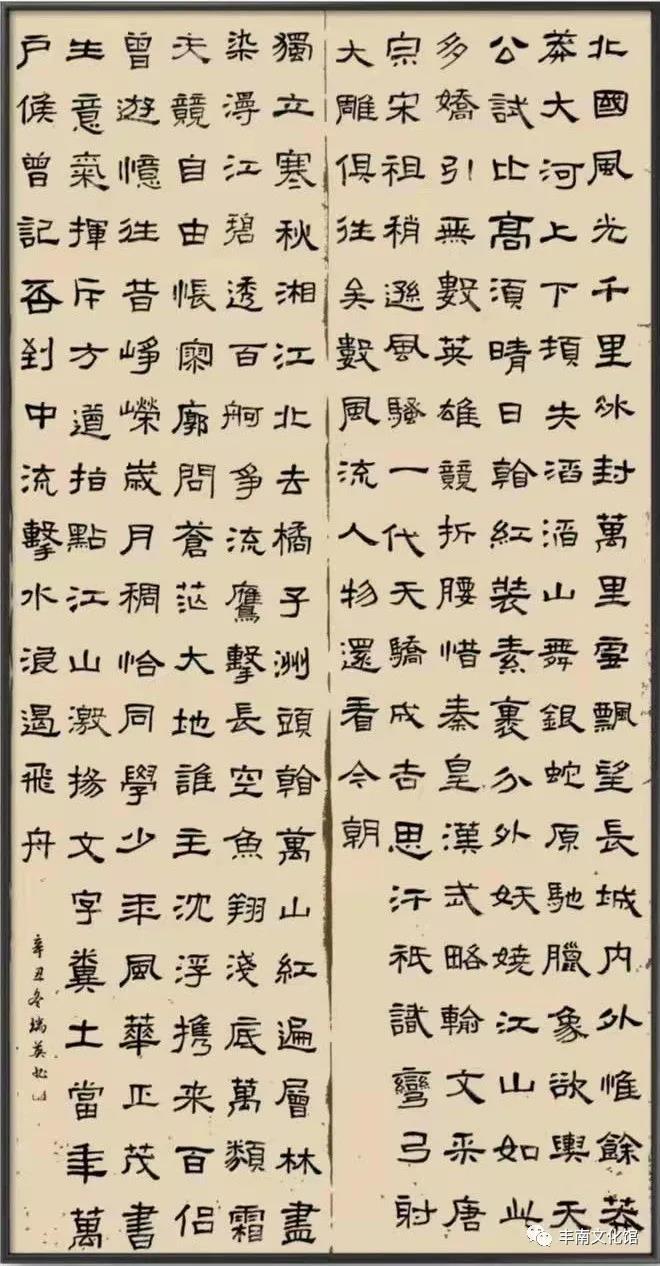 北國風光千里冰封萬里雪飄望長城內外惟餘莽
莽大河上下頓失滔滔山舞銀蛇原馳臘象欲與天
公試比高須晴日看紅裝素裹分外妖嬈江山如此
多嬌引無數英雄競折腰惜秦皇漢武略輸文采唐
宗宋祖稍遜風騷一代天驕成吉思汗祇識彎弓射
大雕俱往矣數風流人物還看今朝
獨立寒秋湘江北去橘子洲頭看萬山紅遍層林盡
染漫江碧透百舸爭流鷹擊長空魚翔淺底萬類霜
天競自由悵寥廓問蒼茫大地誰主沈浮携来百侶
曾遊憶往昔崢嶸歲月稠恰同學少年風華正茂書
生意氣揮斥方遒指點江山激揚文字糞土當年萬
戶侯曾記否到中流擊水浪遏飛舟
辛丑冬瑞英
丰南文化馆